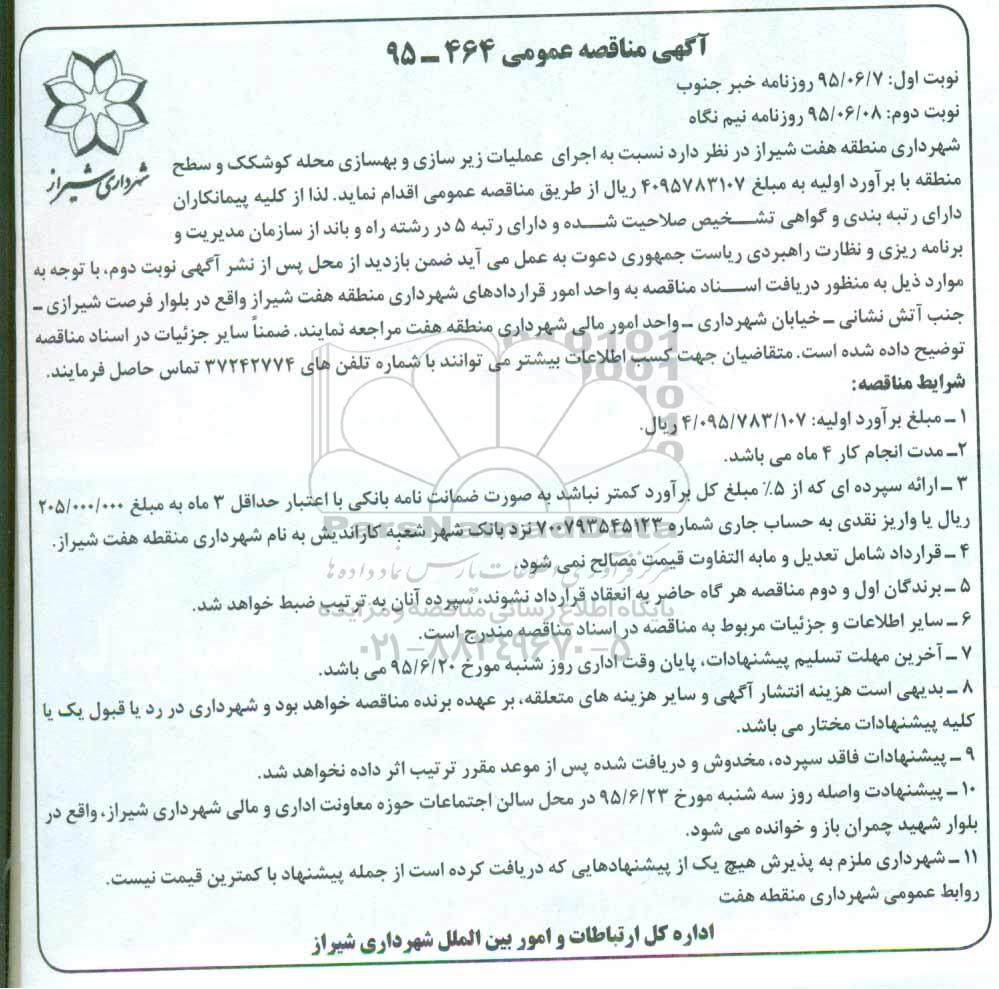 آگهی مناقصه عمومی ۴۶۴ ـ ۹۵
نوبت اول: ۹۵/۰۶/۷ روزنامه خبر جنوب
نوبت دوم: ۹۵/۰۶/۰۸ روزنامه نیم نگاه
شهرداری شیراز
شهرداری منطقه هفت شیراز در نظر دارد نسبت به اجرای عملیات زیر سازی و بهسازی محله کوشکک و سطح
منطقه با برآورد اولیه به مبلغ ۴۰۹۵۷۸۳۱۰۷ ریال از طریق مناقصه عمومی اقدام نماید. لذا از کلیه پیمانکاران
دارای رتبه بندی و گواهی تشخیص صلاحیت شده و دارای رتبه ۵ در رشته راه و باند از سازمان مدیریت و
برنامه ریزی و نظارت راهبردی ریاست جمهوری دعوت به عمل می آید ضمن بازدید از محل پس از نشر آگهی نوبت دوم، با توجه به
موارد ذیل به منظور دریافت اسناد مناقصه به واحد امور قراردادهای شهرداری منطقه هفت شیراز واقع در بلوار فرصت شیرازی ـ
جنب آتش نشانی ـ خیابان شهرداری ـ واحد امور مالی شهرداری منطقه هفت مراجعه نمایند. ضمناً سایر جزئیات در اسناد مناقصه
توضیح داده شده است. متقاضیان جهت کسب اطلاعات بیشتر می توانند با شماره تلفن های ۳۷۲۴۲۷۷۴ تماس حاصل فرمایند.
شرایط مناقصه:
۱ ـ مبلغ برآورد اولیه: ۴/۰۹۵/۷۸۳/۱۰۷ ریال.
۲ـ مدت انجام کار ۴ ماه می باشد.
۳ ـ ارائه سپرده ای که از ۵٪ مبلغ کل برآورد کمتر نباشد به صورت ضمانت نامه بانکی با اعتبار حداقل ۳ ماه به مبلغ ۲۰۵/۰۰۰/۰۰۰
ریال یا واریز نقدی به حساب جاری شماره ۷۰۰۷۹۳۵۴۵۱۲۳ نزد بانک شهر شعبه کاراندیش به نام شهرداری منقطه هفت شیراز.
۴ ـ قرارداد شامل تعدیل و مابه التفاوت قیمت مصالح نمی شود.
۵ ـ برندگان اول و دوم مناقصه هر گاه حاضر به انعقاد قرارداد نشوند، سپرده آنان به ترتیب ضبط خواهد شد.
۶ ـ سایر اطلاعات و جزئیات مربوط به مناقصه در اسناد مناقصه مندرج است.
۷ ـ آخرین مهلت تسلیم پیشنهادات، پایان وقت اداری روز شنبه مورخ ۹۵/۶/۲۰ می باشد.
۸ ـ بدیهی است هزینه انتشار آگهی و سایر هزینه های متعلقه، بر عهده برنده مناقصه خواهد بود و شهرداری در رد یا قبول یک یا
کلیه پیشنهادات مختار می باشد.
۹ ـ پیشنهادات فاقد سپرده، مخدوش و دریافت شده پس از موعد مقرر ترتیب اثر داده نخواهد شد.
۱۰ ـ پیشنهادت واصله روز سه شنبه مورخ ۹۵/۶/۲۳ در محل سالن اجتماعات حوزه معاونت اداری و مالی شهرداری شیراز، واقع در
بلوار شهید چمران باز و خوانده می شود.
۱۱ ـ شهرداری ملزم به پذیرش هیچ یک از پیشنهادهایی که دریافت کرده است از جمله پیشنهاد با کمترین قیمت نیست.
روابط عمومی شهرداری منقطه هفت
اداره کل ارتباطات و امور بین الملل شهرداری شیراز
ParsNamadData
مرکز فرآوری اطلاعات پارس نماد داده ها
پایگاه اطلاع رسانی مناقصه و مزایده
۰۲۱-۸۸۳۴۹۶۷۰-۵